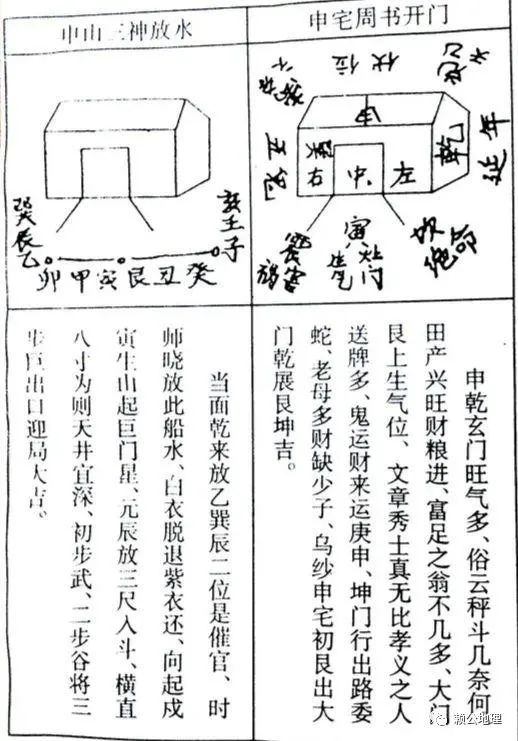 申宅周书开门
伏位
申
乾
延年
右
中
左
寅
灶门
生气
绝命
申乾玄门旺气多、俗云秤斗几奈何
田产兴旺财粮进、富足之翁不几多、大门
艮上生气位、文章秀士真无比孝义之人
送牌多、鬼运财来运庚申、坤门行出路委
蛇、老母多财缺少子、乌纱申宅初艮出大
门乾展艮坤吉。
申山三神放水
巽辰乙
卯甲寅艮丑癸
亥壬子
当面乾来放乙巽辰二位是催官、时
师晓放此船水、白衣脱退紫衣还、向起戌
寅生山起巨门星、元辰放三尺入斗、横直
八寸为则天井宜深、初步武、二步谷将三
步巨出口迎局大吉。
颖公地理